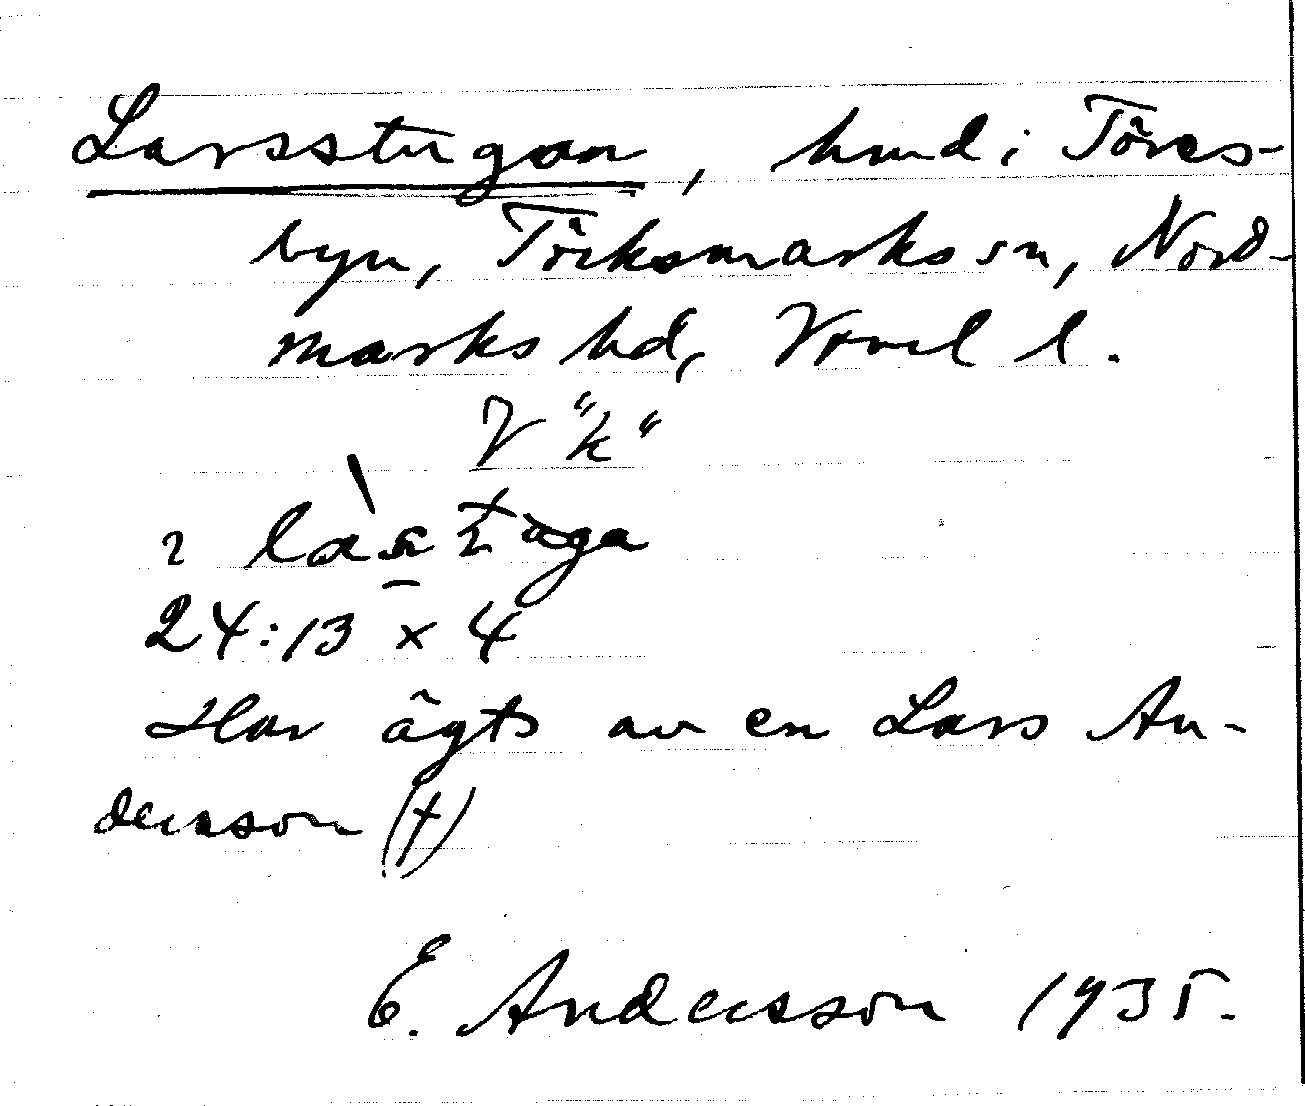 Larsstugan, hmd i Töres-
byn, Töcksmarks sn, Nord-
marks hd, Vrml l.
V "k"
24:13 x 4
Har ägts av en Lars An-
dersson (†)
E. Andersson 1935.